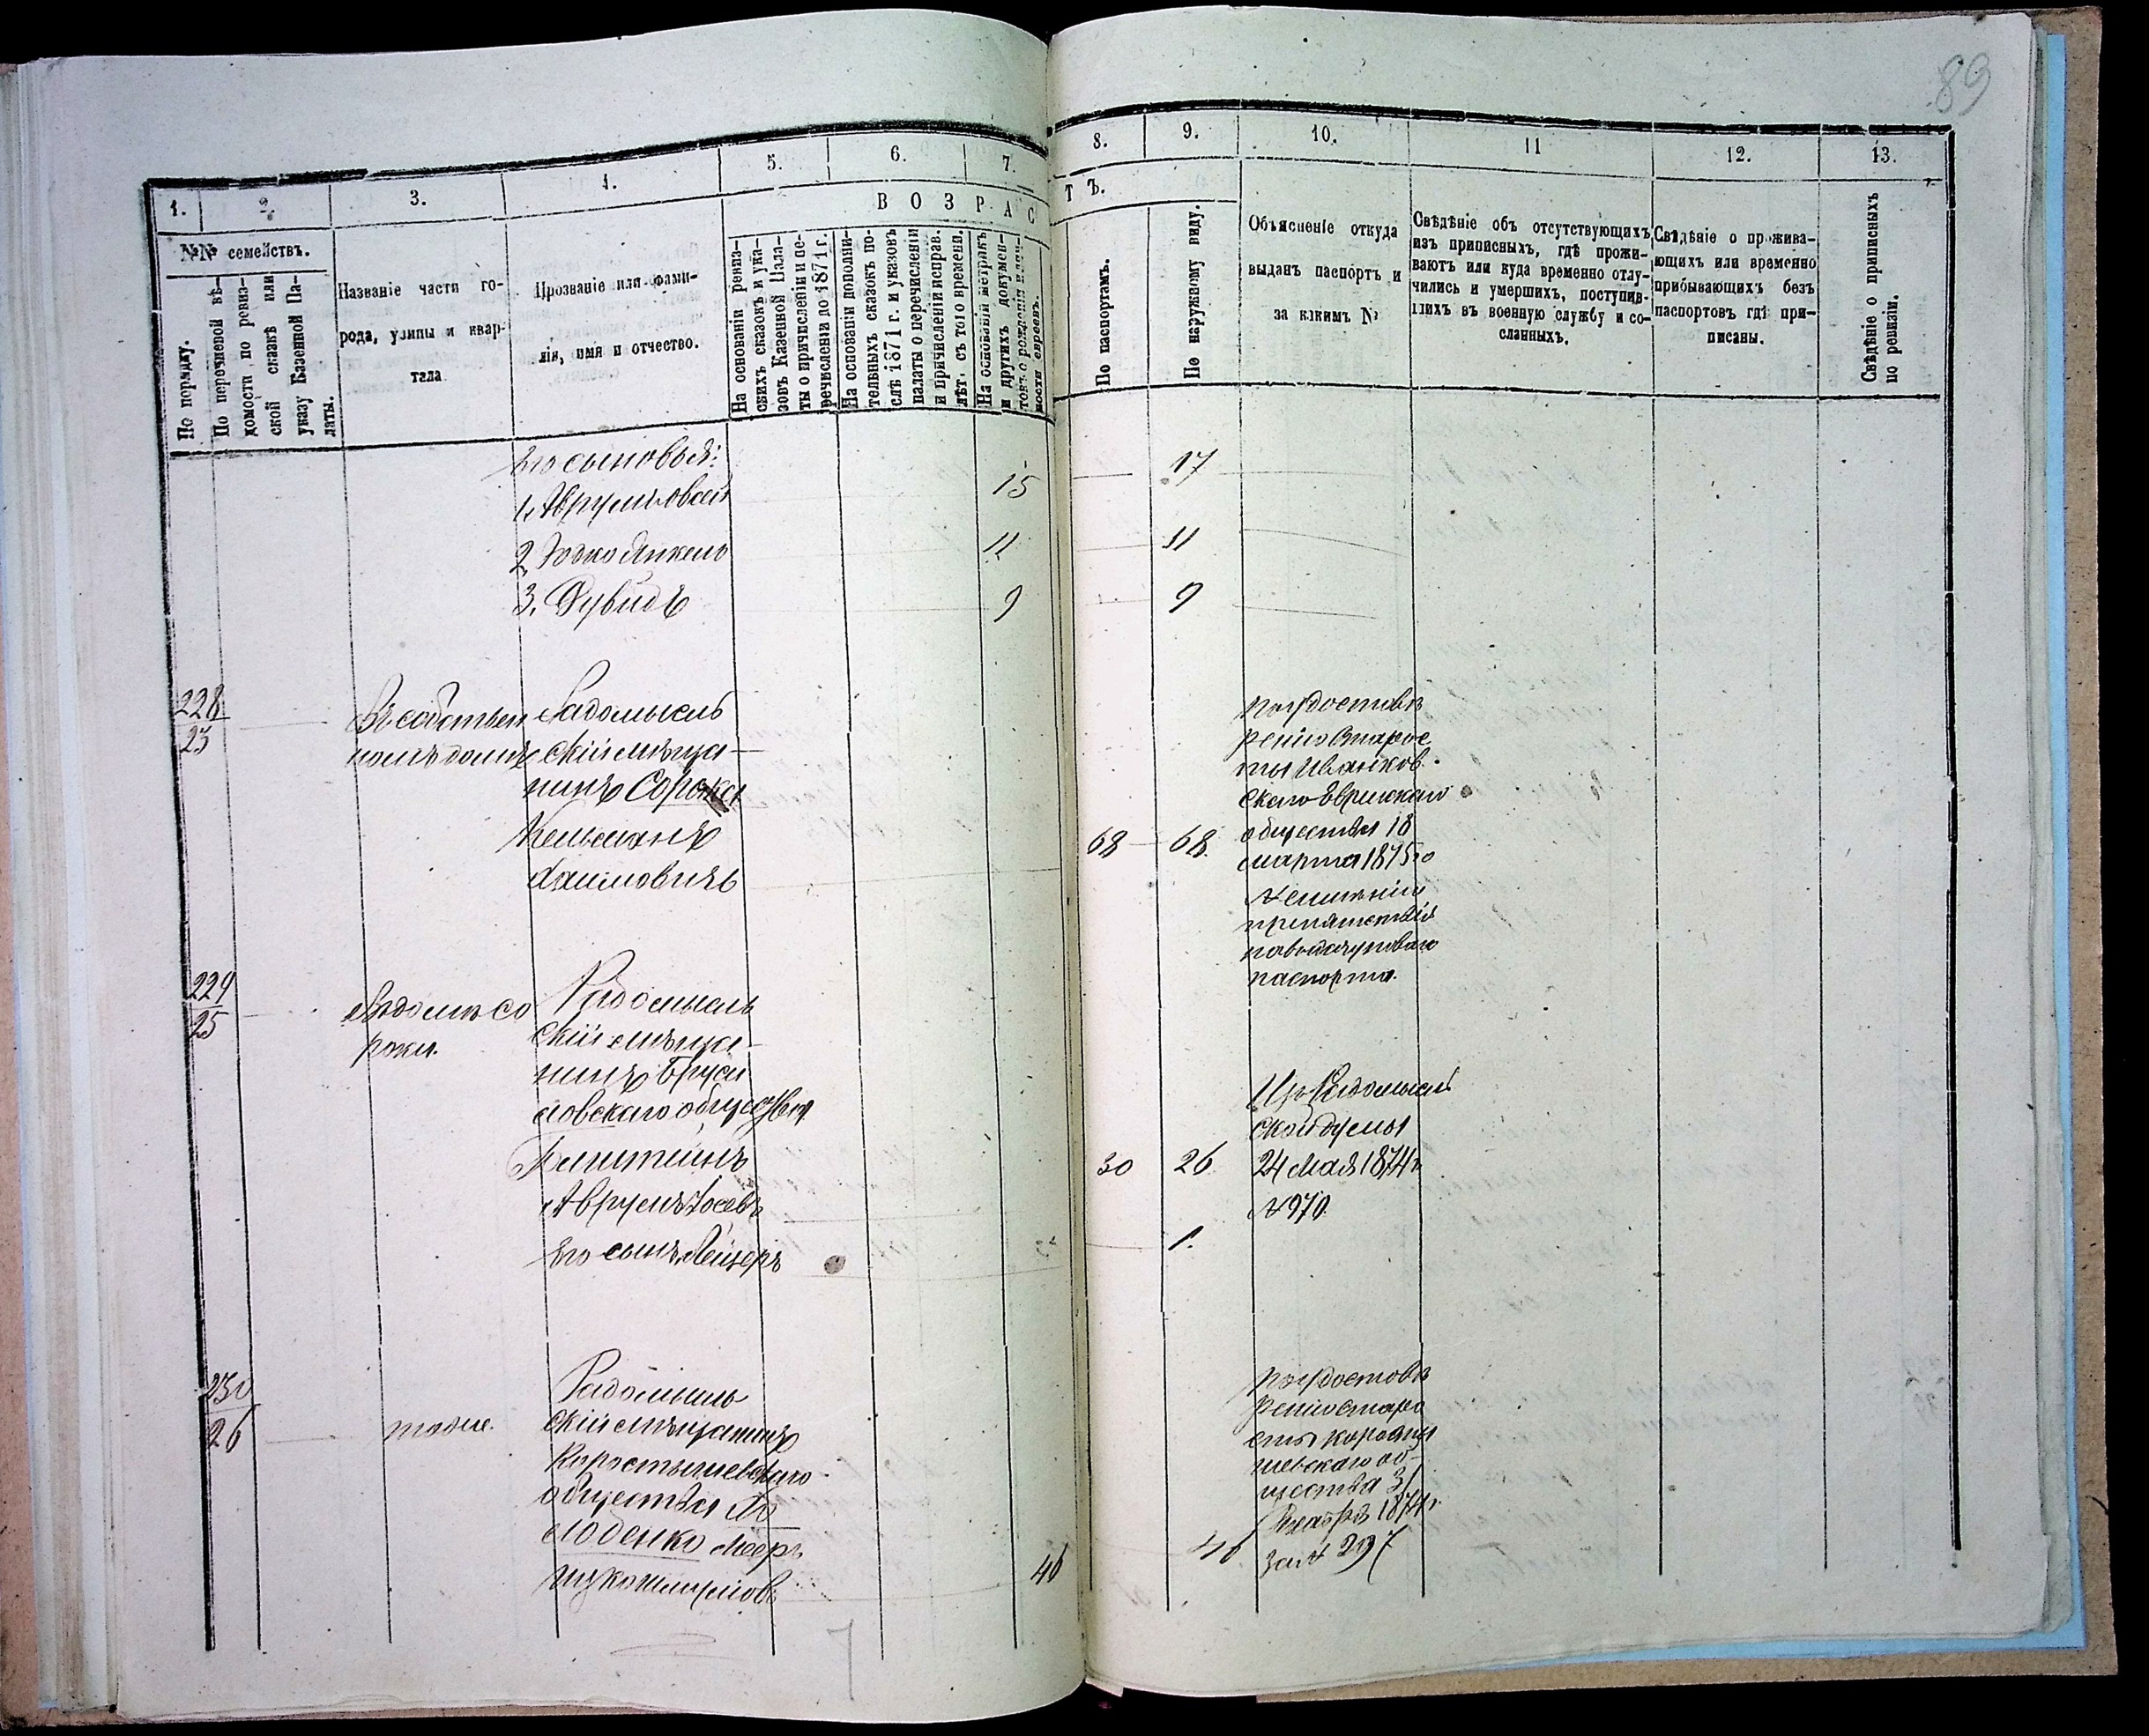 89
1.
2.
3.
4.
5.
6.
7.
8.
9.
10.
11
12.
13.
№№ семействъ.
По порядку.
По перечневой вѣ-
домости, по ревиз-
ской сказкѣ или
указу Казенной Па-
латы.
Названіе части го-
рода, улицы и квар-
тала
Прозваніе или фами-
лія, имя и отчество.
ВОЗРАС
На основаніи ревиз-
скихъ сказокъ и ука-
зовъ Казенной Пала-
ты о причисленіи и пе-
речисленіи до 1871 г.
На основаніи дополни-
тельныхъ сказокъ по-
слѣ 1871 г. и указовъ
палаты о перечисленіи
и причисленіи исправ.
лѣт. съ того времени.
На основаніи метракъ
и другихъ докумен-
товъ о рожденіи
ности евреевъ.
ТЪ.
По паспортамъ.
По наружному виду.
Объясненіе откуда
выданъ паспортъ и
за какимъ №
Свѣдѣніе объ отсутствующихъ
изъ приписныхъ, гдѣ прожи-
ваютъ или куда временно отлу-
чились и умершихъ, поступив-
шихъ въ военную службу и со-
сланныхъ.
Свѣдѣніе о прожива-
ющихъ или временно
прибывающихъ безъ
паспортовъ гдѣ при-
писаны.
Свѣдѣніе о приписныхъ
по ревизіи.
Его сыновья:
1. Аврумъ овсей 15 17
2. Юдко Янкель 11 11
3. Дувидъ 9 9
228
23
Въ собствен
номъ домѣ
Радомысль
скій мѣща-
нинъ Сорока
Кельманъ
Хаимовичъ
68 68.
По удостовѣ
ренію Старос
ты Иванков-
скаго Еврейскаго
общества 18
марта 1875 го
препятствія
паспорта.
229
25
Въ домѣ Со
роки.
Радомысль
скій мѣща-
нинъ Бруси
ловскаго общества
Аврумъ Іосевъ
30 26
Его сынъ Лейзеръ
1.
Изъ Радомысль
ской думы
24 Мая 1874 г
№ 970.
230
26
тоже.
Радомысль
скій мѣщанинъ
Коростышевскаго
общества
Мееръ
46 46
По удостовѣ
ренію старо
сты Коросты
шевскаго об-
щества 31
1874 г.
за № 297